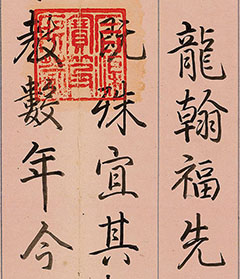 龍翰福先
既殊宜其
教數年今